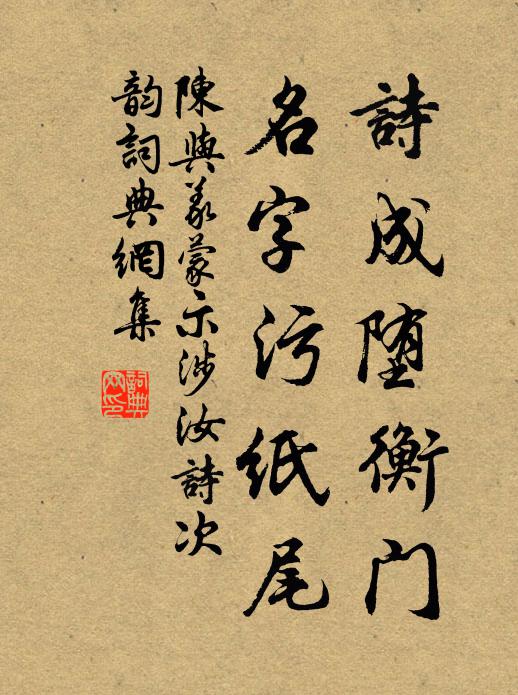 詩成堕衡门
名字污紙尾
陳與義蒙示涉汝詩次
韵詞典網集
詞典
网印